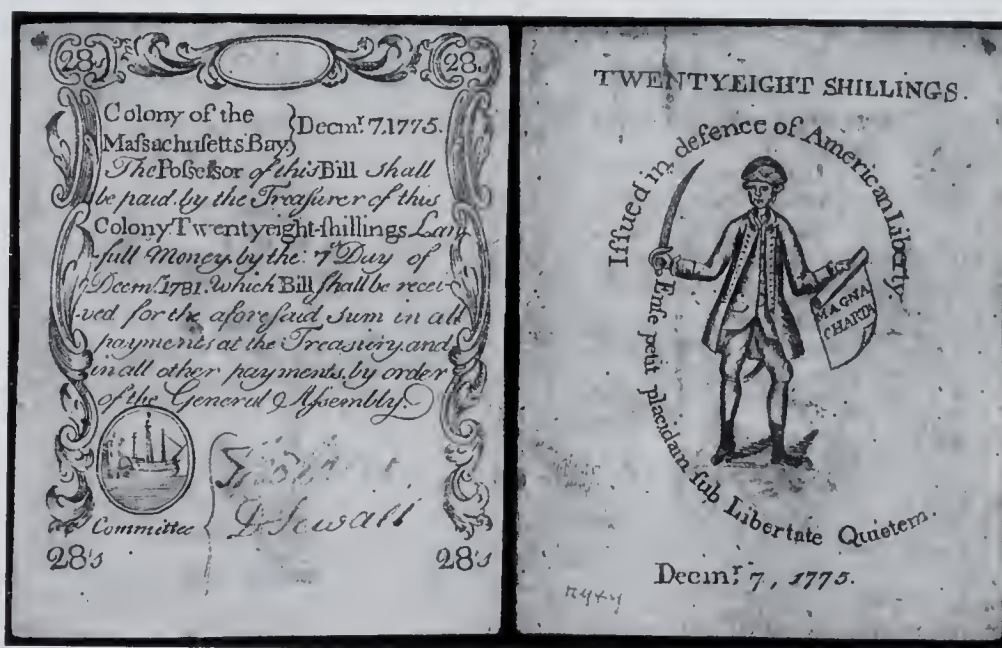 28s 28s
Colony of the
Maſsachuſetts Bay } Decmr. 7. 1775.
The Poſseſsor of this Bill shall
be paid by the Treaſurer of this
Colony Twentyeight-ſhillings Law
full Money by the 7th Day of
Decmr. 1781. which Bill ſhall be recei-
-ved for the aforeſaid sum in all
payments at the Treasury and
in all other payments by order
of the General Aſsembly
Committee
D Sewall
28s 28s
TWENTYEIGHT SHILLINGS.
Iſſued in defence of American Liberty.
Enſe petit placidam ſub Libertate Quietem.
MAGNA
CHARTA
Decmr. 7, 1775.